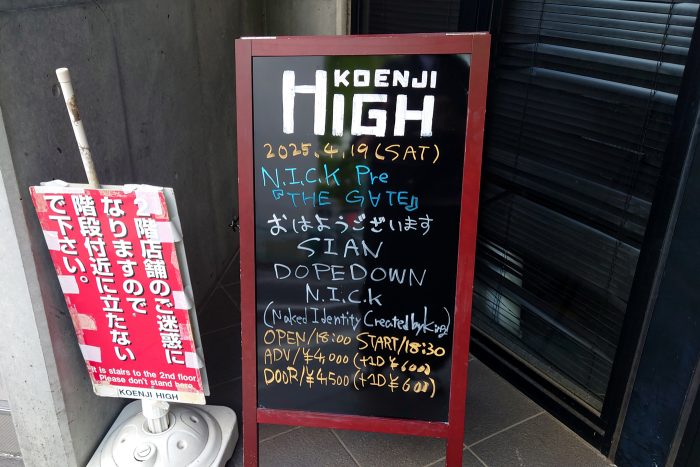 KOENJI
HIGH
2025.4.19(SAT)
N.I.C.K Pre
『THE GATE』
おはようございます
SIAN
DOPEDOWN
N.I.C.K
(Naked Identity Created by King)
OPEN/18:00 START/18:30
ADV/¥4,000 (+1D ¥600)
DOOR/¥4500 (+1D ¥600)
2階店舗のご迷惑に
なりますので
階段付近に立たない
で下さい。
It is stairs to the 2nd floor
Please don't stand here
KOENJI HIGH